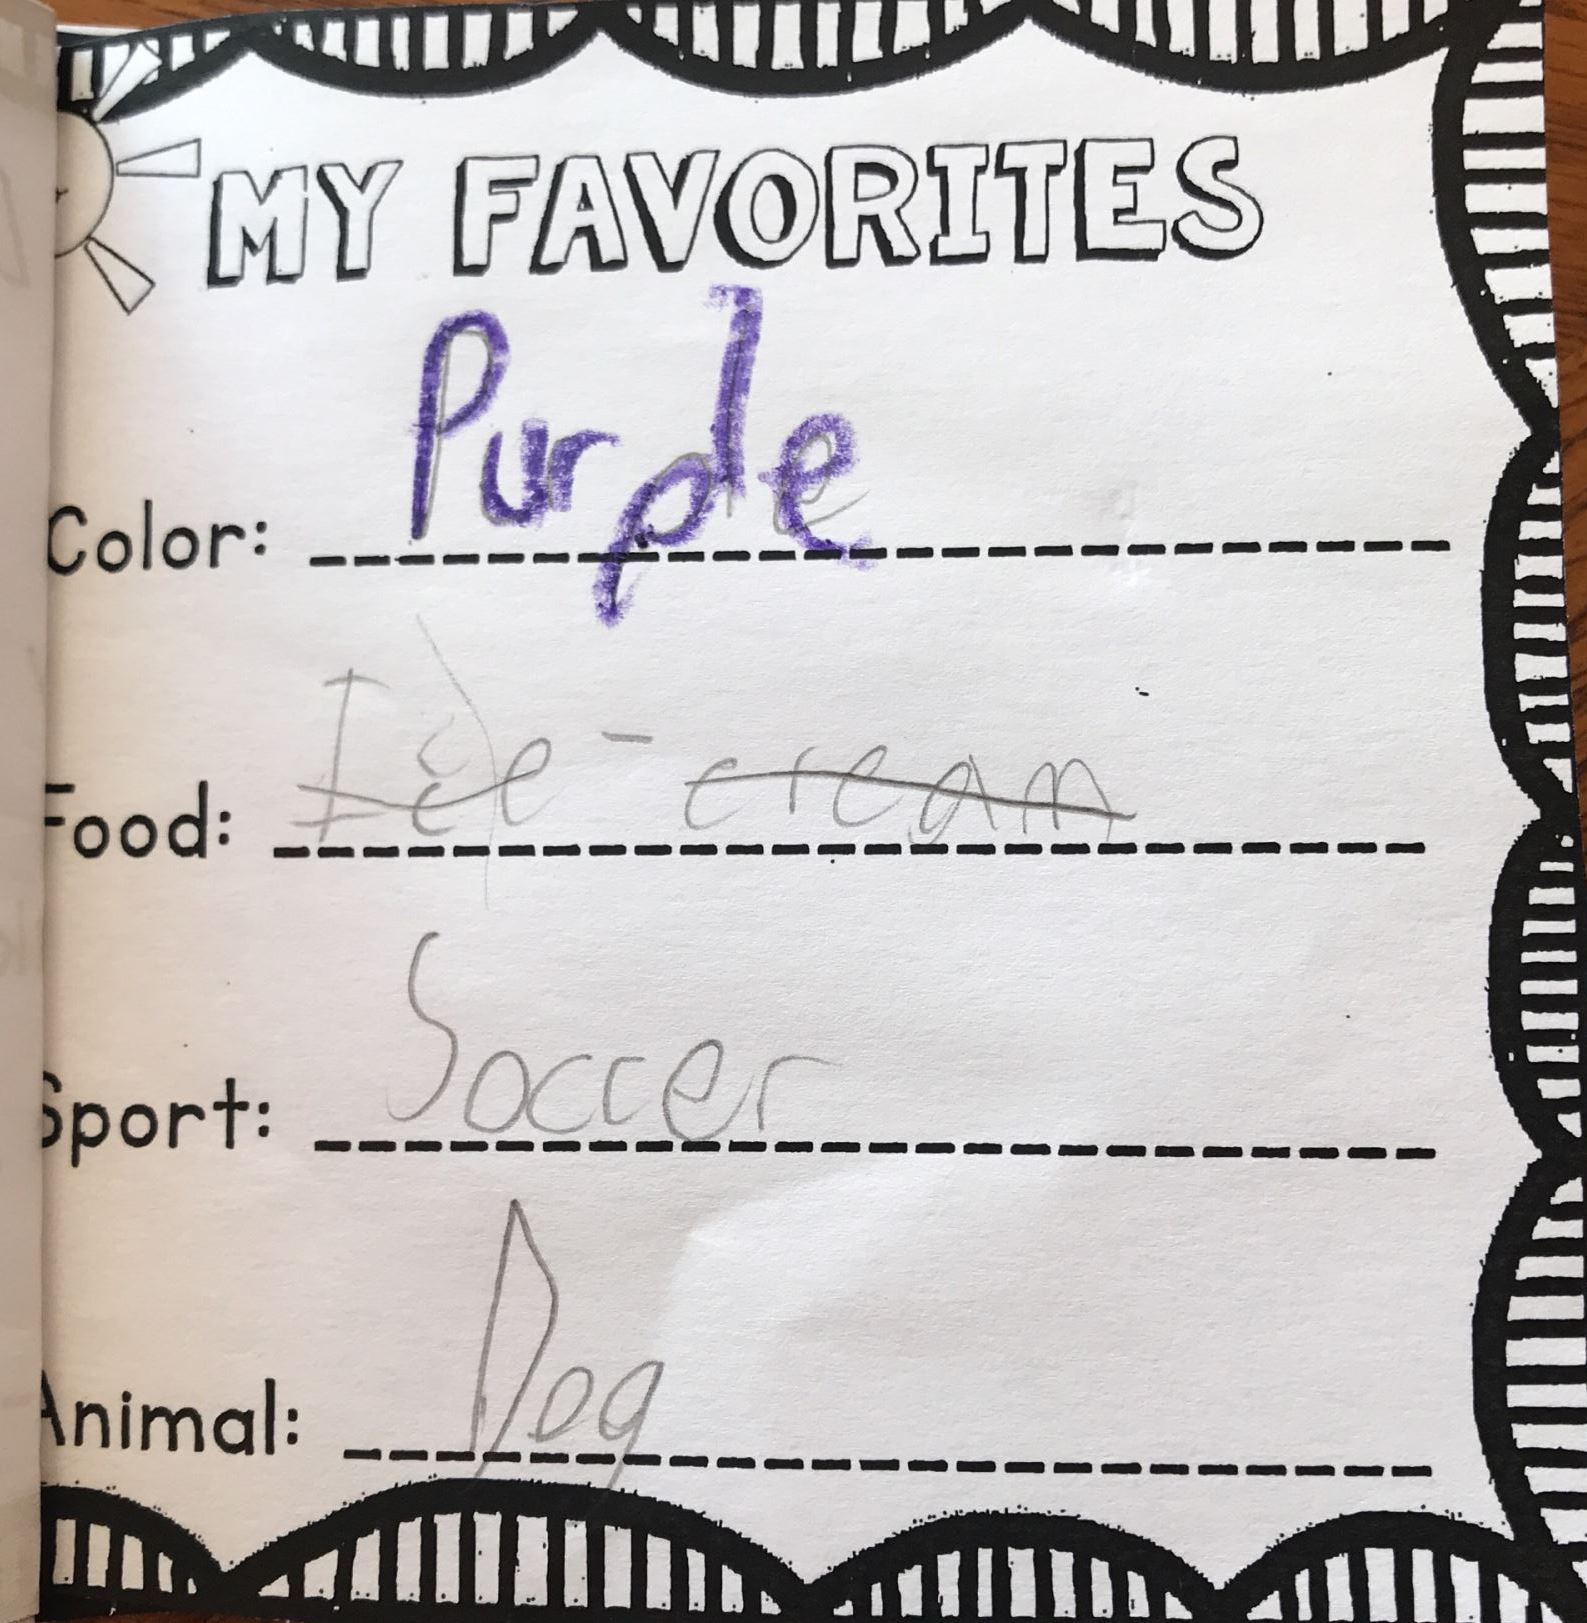 MY FAVORITES
Color: Purple
Food: Ice-cream
Sport: Soccer
Animal: Dog